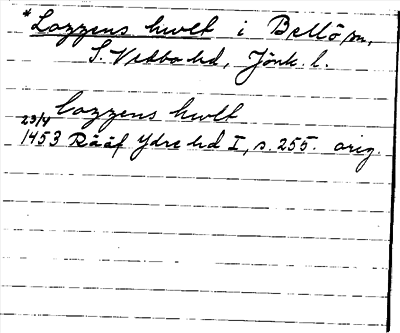 *Lazzens hwlt i Bellö sn,
S. Vedbo hd, Jönk. l.
lazzens hwlt
29/4
1453 Rääf Ydre hd I, s. 255. orig.